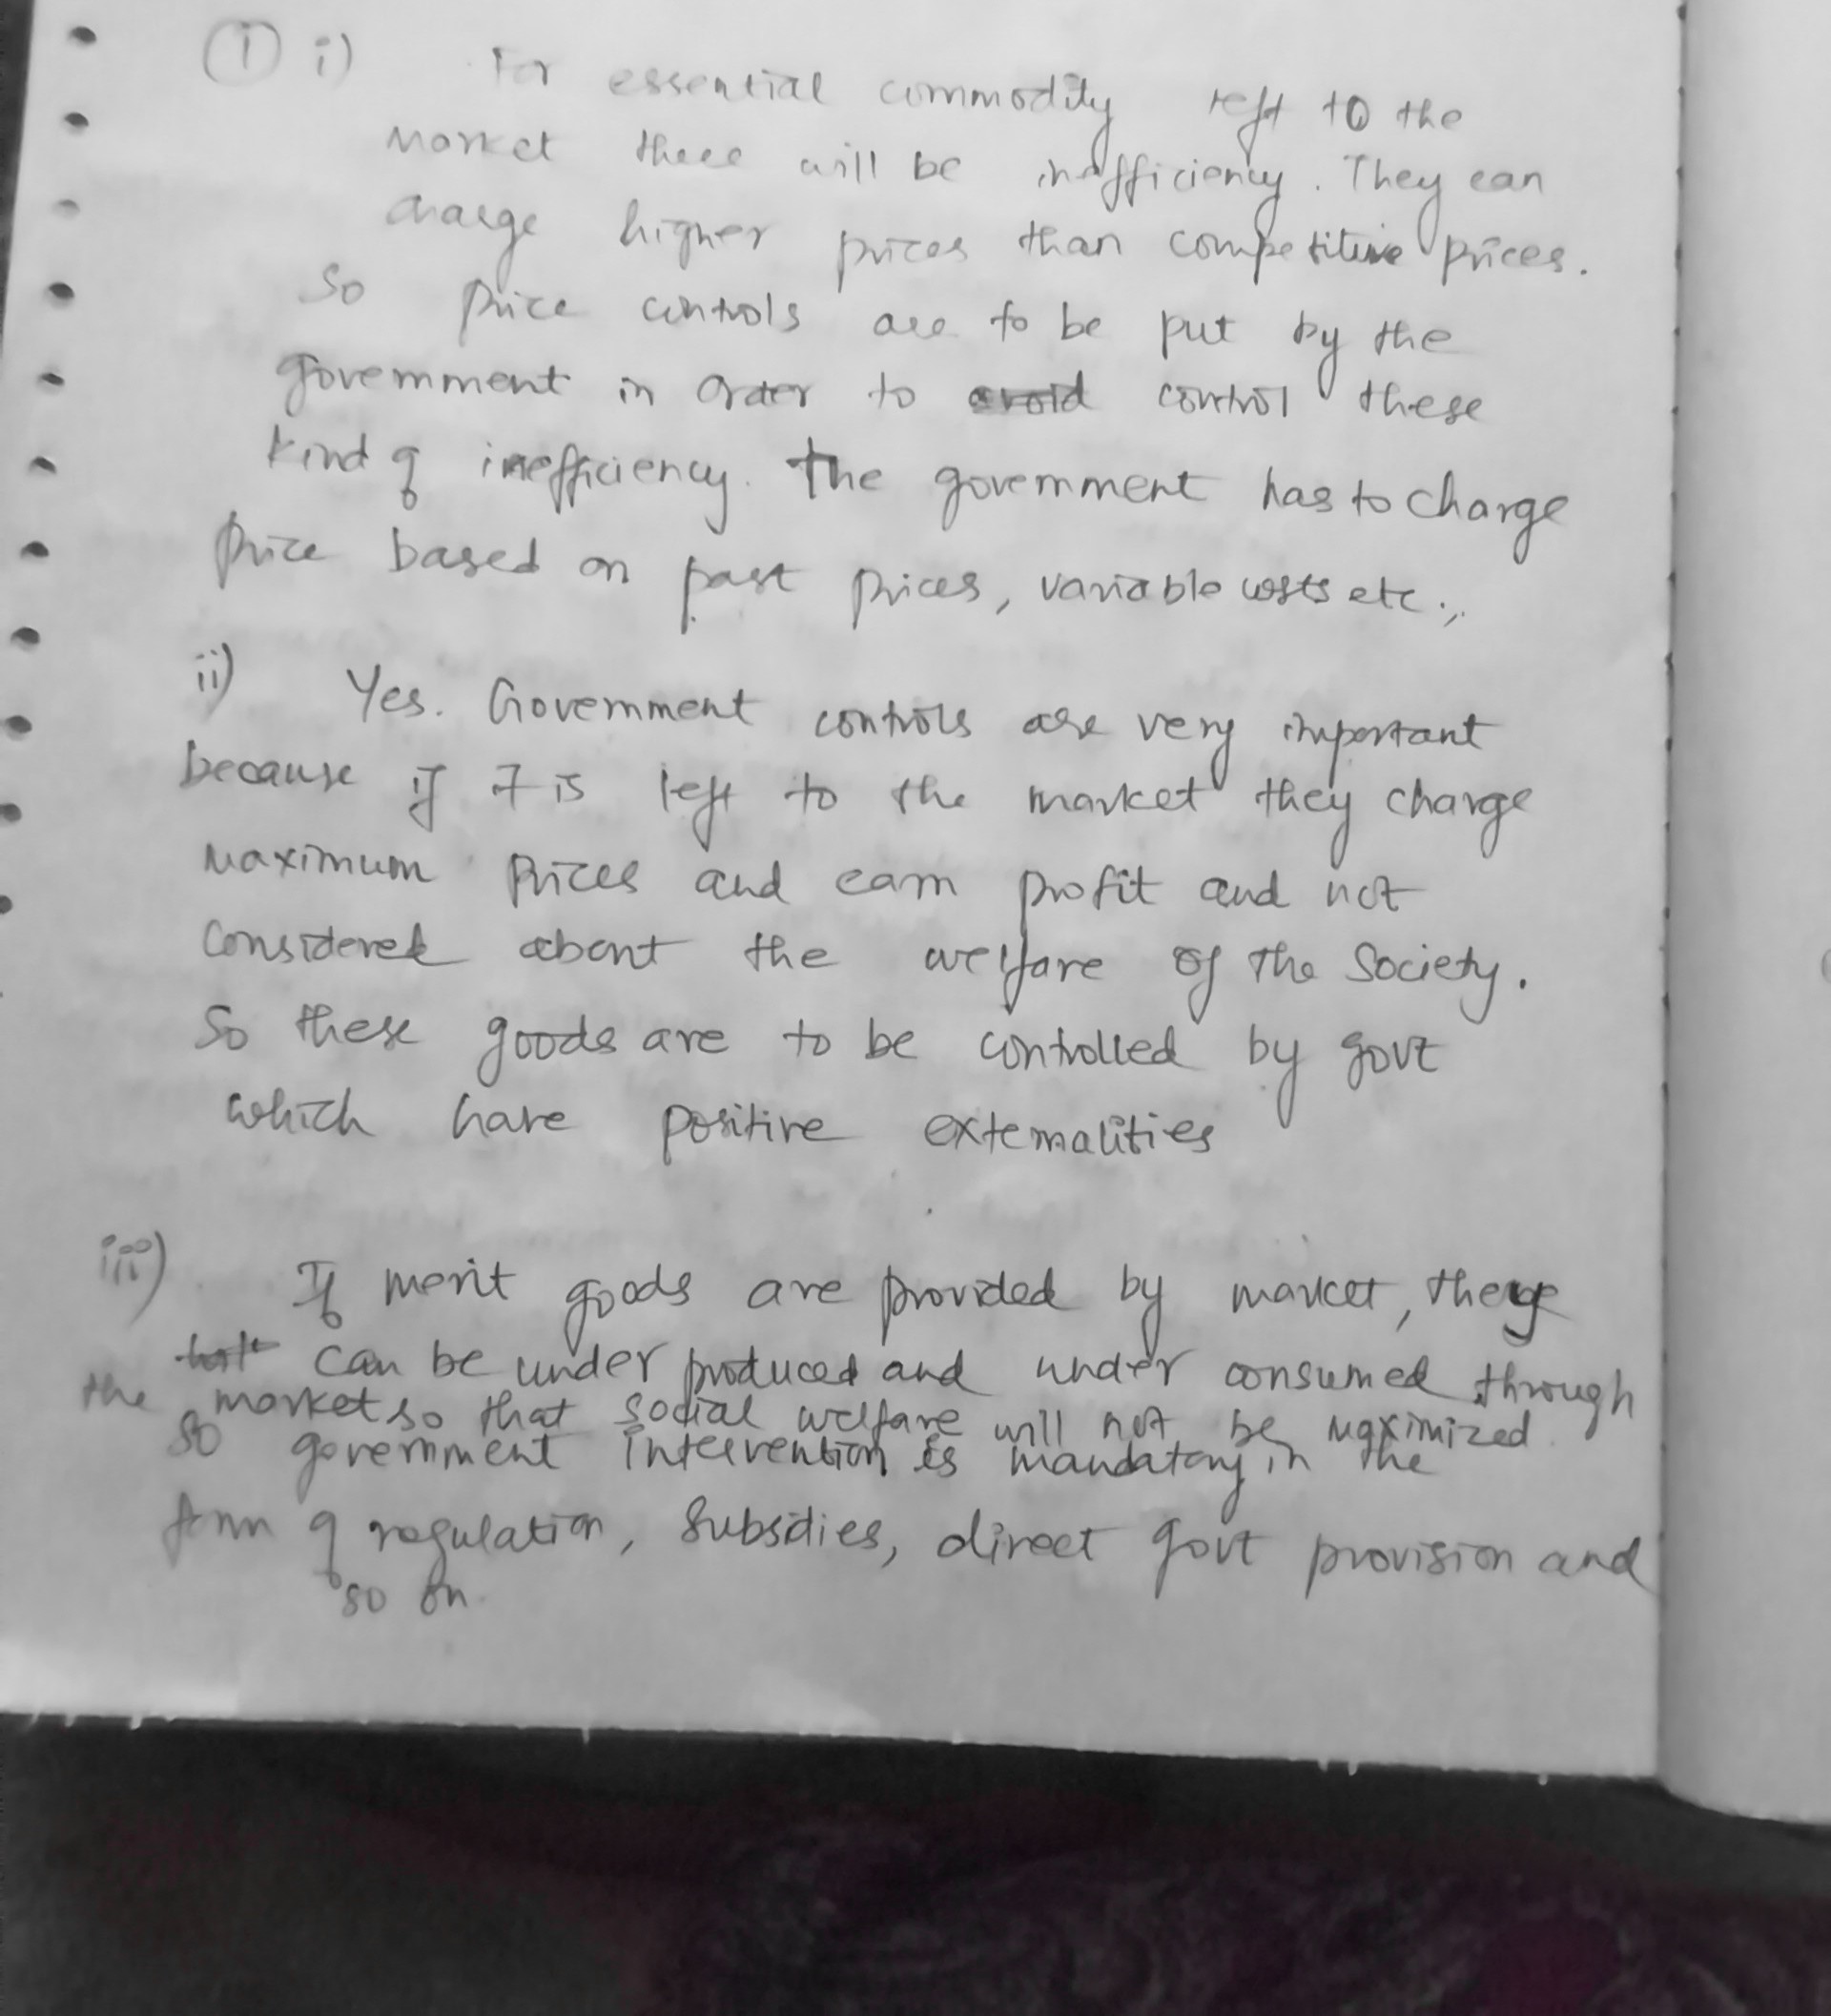 ① i) For essential commodity left to the
market there will be inefficiency. They can
charge higher prices than competitive prices.
So price controls are to be put by the
government in order to avoid control these
kind of inefficiency. The government has to charge
price based on past prices, variable costs etc.,
ii) Yes. Government controls are very important
because if it is left to the market they charge
maximum prices and earn profit and not
considered about the welfare of the society.
So these goods are to be controlled by govt
which have positive externalities
iii) If merit goods are provided by market, these
can be under produced and under consumed through
the market so that social welfare will not be maximized.
So government intervention is mandatory in the
form of regulation, subsdies, direct govt provision and
so on.